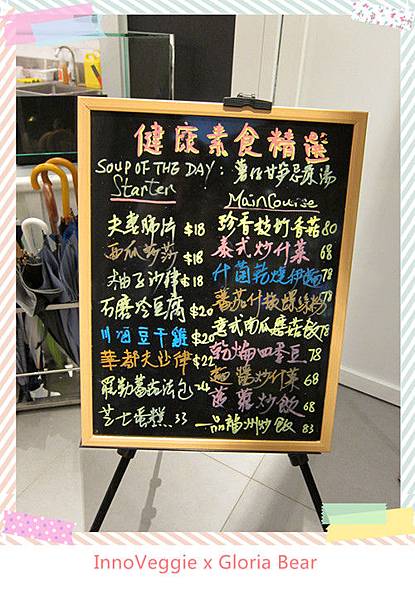 健康素食精選
SOUP OF THE DAY:
Starter
夫妻肺片 $18
西瓜莎莎 $18
柚子沙律 $18
石磨冷豆腐 $20
川汁豆干雞 $20
華都夫沙律 $22
羅勒蕃茄法包 24
芝士蛋糕 33
MainCourse
珍香枝竹香菇 80
泰式炒什菜 68
什菌乾燒伊麵 78
蕃茄什菌螺絲粉 78
意式南瓜蘑菇飯 78
乾煸四季豆 78
麵醬炒什菜 68
菠蘿炒飯 68
一品福州炒飯 83
InnoVeggie x Gloria Bear